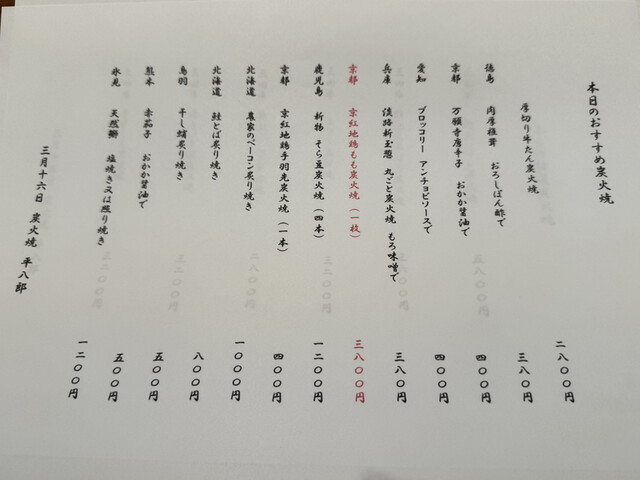 本日のおすすめ炭火焼
厚切り牛たん炭火焼 二八〇〇円
徳島 肉厚椎茸 おろしぽん酢で 三八〇円
京都 万願寺唐辛子 おかか醤油で 四〇〇円
愛知 ブロッコリー アンチョビソースで 四〇〇円
兵庫 淡路新玉葱 丸ごと炭火焼 もろ味噌で 三八〇円
京都 京紅地鶏もも炭火焼(一枚) 三八〇〇円
鹿児島 新物 そら豆炭火焼(四本) 一二〇〇円
京都 京紅地鶏手羽先炭火焼(一本) 四〇〇円
北海道 農家のベーコン炙り焼き 一〇〇〇円
北海道 鮭とば炙り焼き 八〇〇円
鳥羽 干し蛸炙り焼き 五〇〇円
熊本 赤茄子 おかか醤油で 五〇〇円
氷見 天然鰤 塩焼き又は照り焼き 一二〇〇円
三月十六日 炭火焼 平八郎